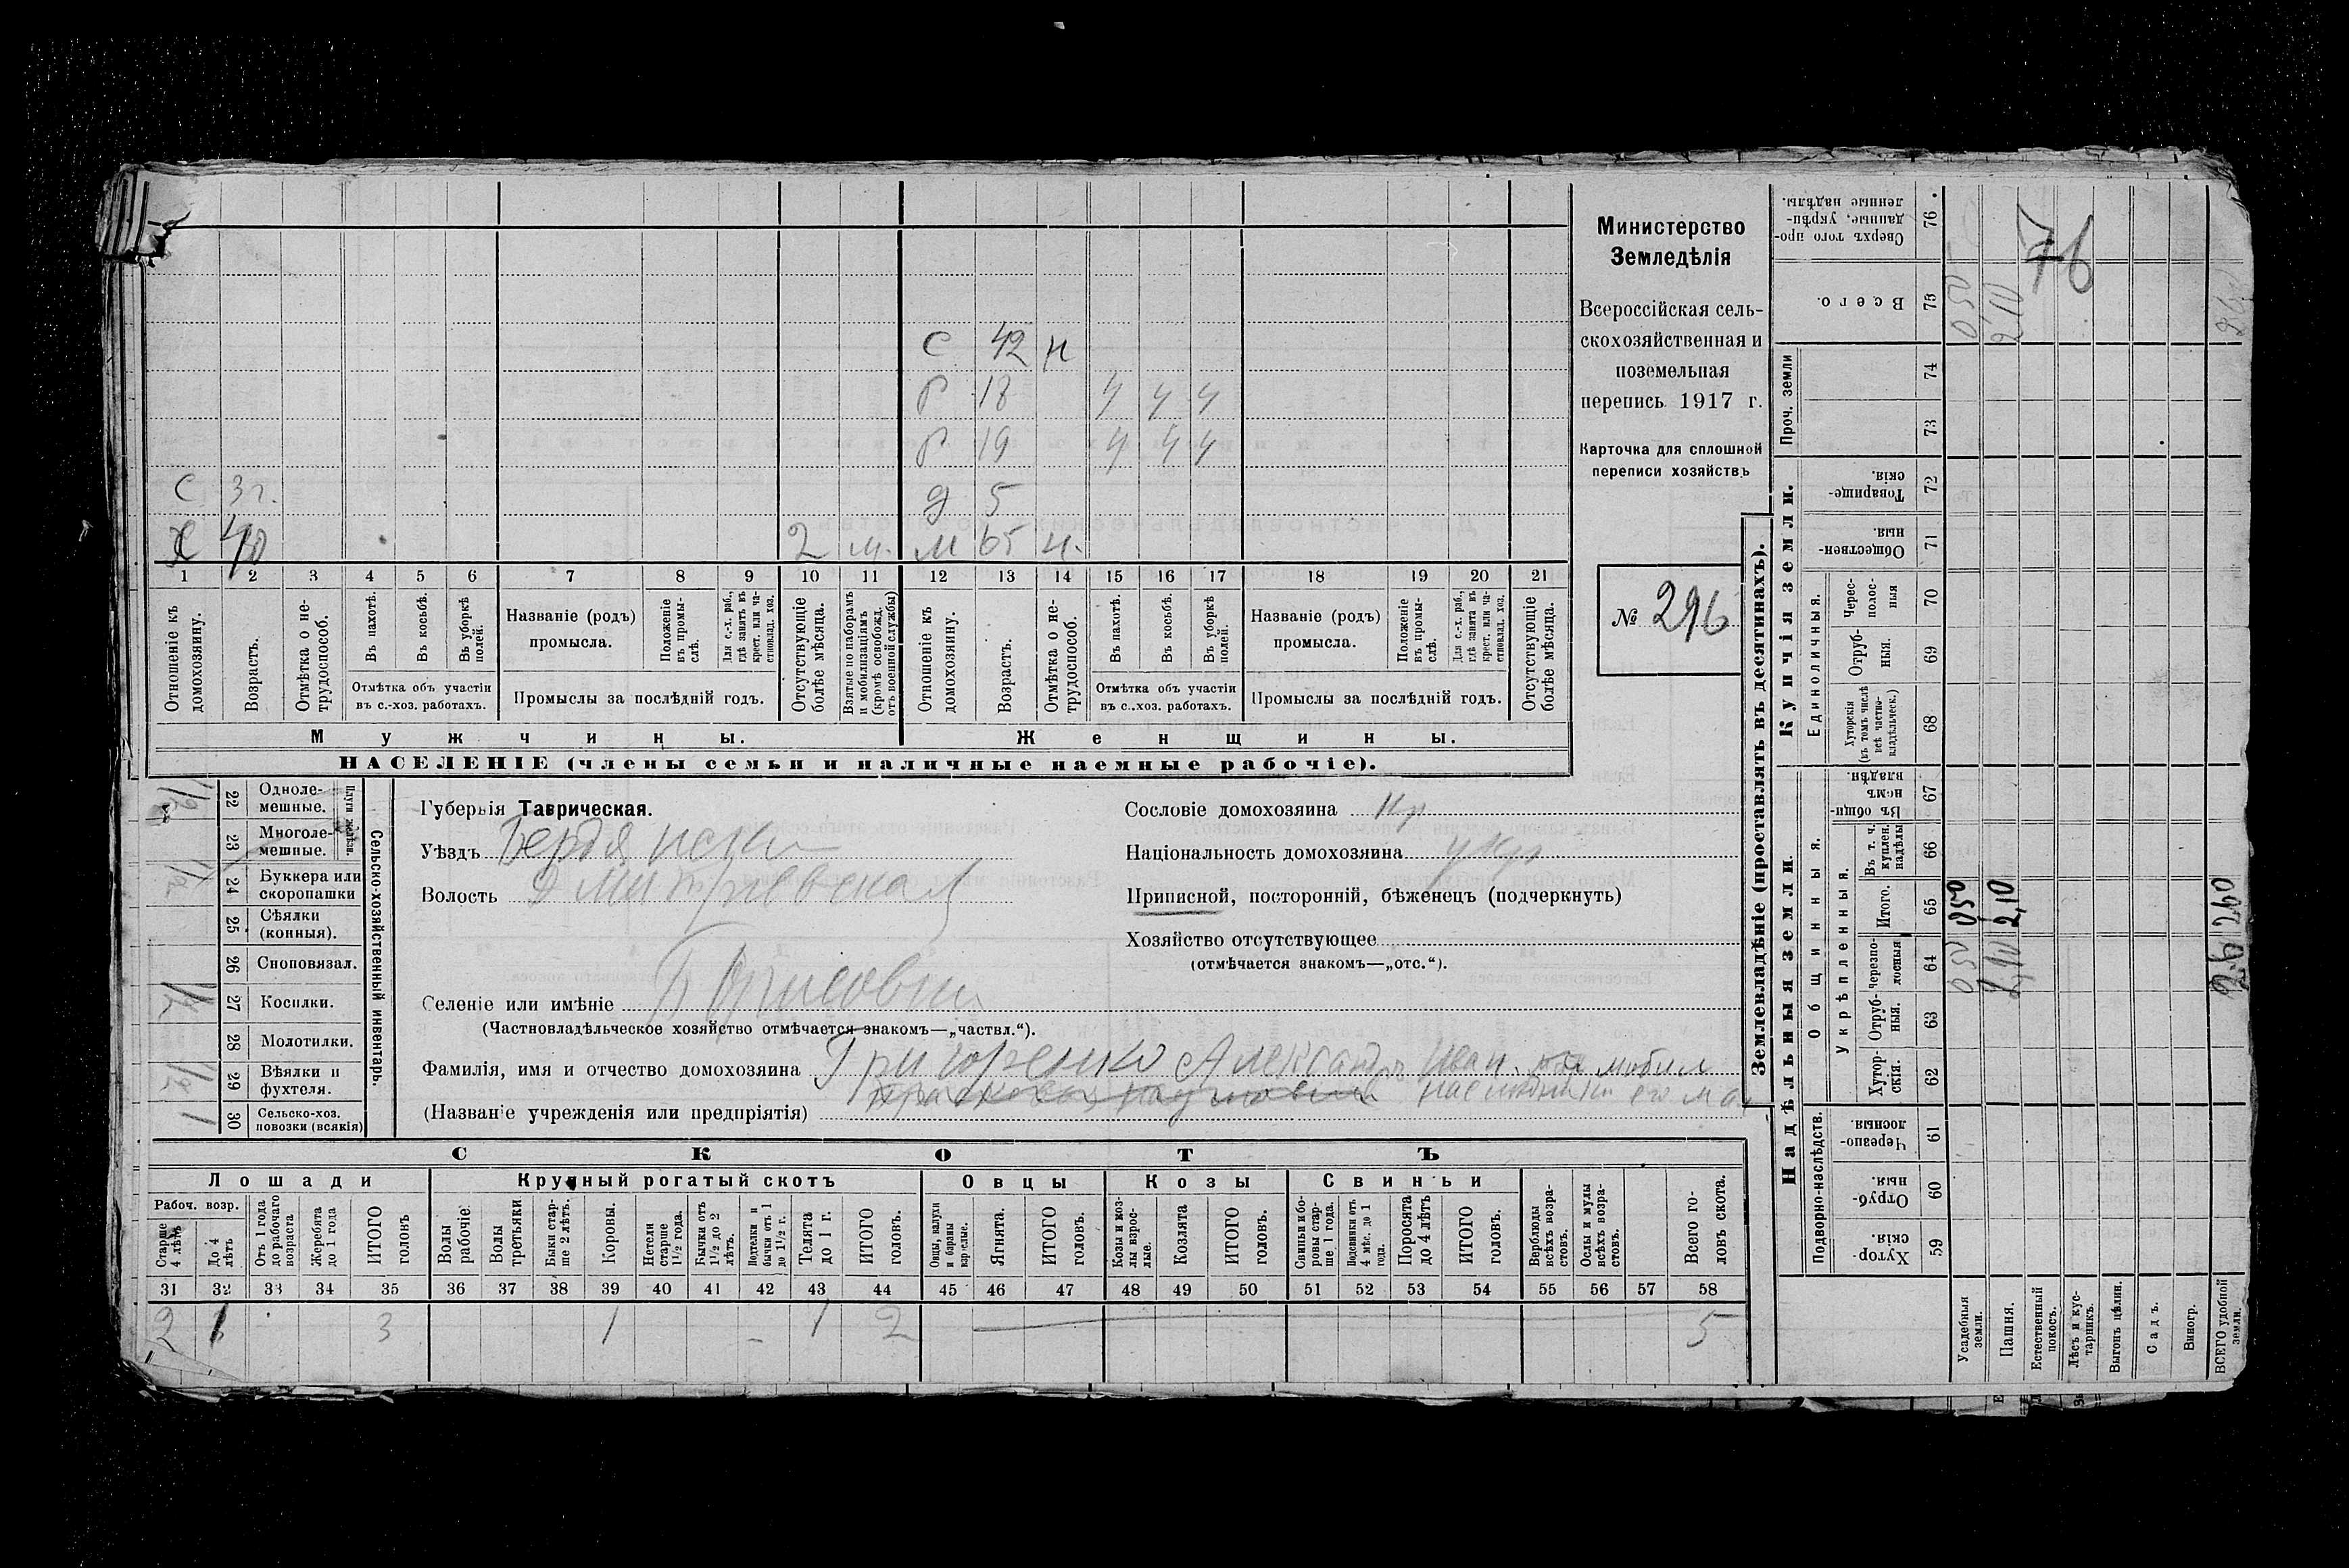 С 42 н
Р 18 ч ч ч
Р 19 ч ч ч
С 3 г. д 5
Х 40 2 м. М 65 н.
1 2 3 4 5 6 7 8 9 10 11 12 13 14 15 16 17 18 19 20 21
Отношеніе къ домохозяину.
Возрастъ.
Отмѣтка о нетрудоспособ.
Въ пахотѣ.
Въ косьбѣ.
Въ уборкѣ полей.
Отмѣтка объ участіи въ с.-хоз. работахъ.
Названіе (родъ) промысла.
Положеніе въ промыслѣ.
Для с.-х. раб., гдѣ занятъ въ крест. или частновлад. хоз.
Промыслы за послѣдній годъ.
Отсутствующіе болѣе мѣсяца.
Взятые по наборамъ и мобилизаціямъ (кромѣ освобожд. отъ военной службы)
Отношеніе къ домохозяину.
Возрастъ.
Отмѣтка о нетрудоспособ.
Въ пахотѣ.
Въ косьбѣ.
Въ уборкѣ полей.
Отмѣтка объ участіи въ с.-хоз. работахъ.
Названіе (родъ) промысла.
Положеніе въ промыслѣ.
Для с.-х. раб., гдѣ занята въ крест. или частновлад. хоз.
Промыслы за послѣдній годъ.
Отсутствующіе болѣе мѣсяца.
Мужчины. Женщины.
НАСЕЛЕНІЕ (члены семьи и наличные наемные рабочіе).
Министерство
Земледѣлія
Всероссійская сель-
скохозяйственная и
поземельная
перепись 1917 г.
Карточка для сплошной
переписи хозяйствъ
№ 296
22 Одноле-
мешные.
23 Многоле-
мешные.
Плуги желѣзн.
24 Буккера или
скоропашки
25 Сѣялки
(конныя).
26 Сноповязал.
27 Косилки.
28 Молотилки.
29 Вѣялки и
фухтеля.
30 Сельско-хоз.
повозки (всякія)
1
Сельско-хозяйственный инвентарь.
Губернія Таврическая.
Уѣздъ Бердянски
Волость Дмитріевская
Селеніе или имѣніе Борисовка
(Частновладѣльческое хозяйство отмѣчается знакомъ—„частвл.“).
Фамилія, имя и отчество домохозяина Григоренко Александръ Иван.
(Названіе учрежденія или предпріятія)
Сословіе домохозяина кр
Національность домохозяина укр
Приписной, посторонній, бѣженецъ (подчеркнуть)
Хозяйство отсутствующее
(отмѣчается знакомъ—„отс.“).
СКОТЪ
Лошади Крупный рогатый скотъ Овцы Козы Свиньи
Рабоч. возр.
Старше 4 лѣтъ
До 4 лѣтъ
Отъ 1 года до рабочаго возраста
Жеребята до 1 года
ИТОГО головъ
Волы рабочіе.
Волы третьяки
Быки старше 2 лѣтъ.
Коровы.
Нетели старше 1½ года.
Бычки отъ 1½ до 2 лѣтъ.
Подтелки и бычки отъ 1 до 1½ г.
Телята до 1 г.
ИТОГО головъ.
Овцы, валухи и бараны взрослые.
Ягнята.
ИТОГО головъ.
Козы и козлы взрослые.
Козлята
ИТОГО головъ.
Свиньи и боровы старше 1 года.
Подсвинки отъ 4 мѣс. до 1 года.
Поросята до 4 лѣтъ
ИТОГО головъ.
Верблюды всѣхъ возрастовъ.
Ослы и мулы всѣхъ возрастовъ.
Всего головъ скота.
31 32 33 34 35 36 37 38 39 40 41 42 43 44 45 46 47 48 49 50 51 52 53 54 55 56 57 58
2 1 3 1 1 2 5
Землевладѣніе (проставлять въ десятинахъ).
Купчія земли.
Надѣльныя земли.
Сверхъ того проданные, укрѣпленные надѣлы. 76
Всего. 75
Проч. земли 74 73
Товарищескія 72
Общественныя 71
Единоличныя.
Черезполосныя 70
Отрубныя. 69
Хуторскія (въ томъ числѣ всѣ частновладѣльческ.) 68
Общинныя.
Въ общинномъ владѣн. 67
Укрѣпленныя.
Въ т. ч. куплен. надѣлы 66
Итого. 65
Черезполосныя 64
Отрубныя. 63
Хуторскія. 62
Подворно-наслѣдств.
Черезполосныя. 61
Отрубныя. 60
Хуторскія. 59
Усадебныя земли.
Пашня.
Естественный покосъ.
Лѣсъ и кустарникъ.
Выгонъ цѣлин.
Садъ.
Виногр.
ВСЕГО удобной земли.
76
050 2,10
050 2,10
050 2,10